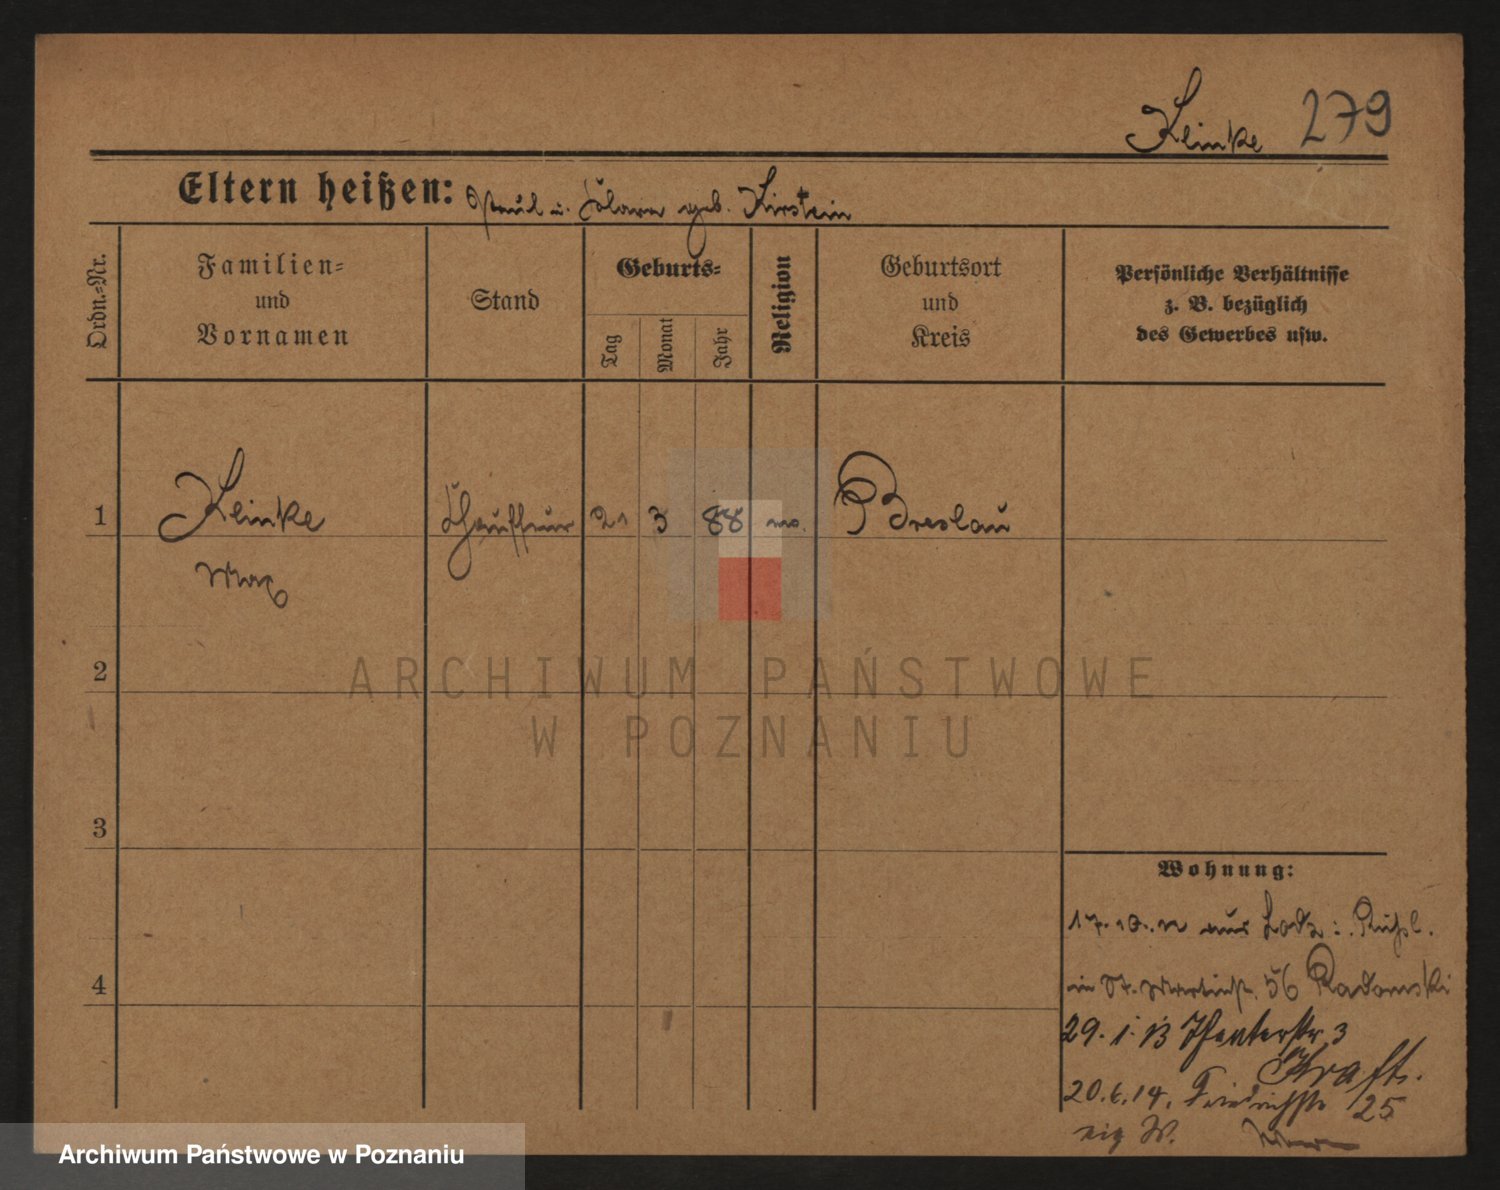 Kleinke 279
Eltern heißen: Paul u. Clara geb. Kirstein
Ordn.-Nr.
Familien-
und
Vornamen
Stand
Geburts-
Tag
Monat
Jahr
Religion
Geburtsort
und
Kreis
Persönliche Verhältnisse
z. B. bezüglich
des Gewerbes usw.
1 Kleinke Chauffeur 21 3 88 Breslau
Max
2
ARCHIWUM PAŃSTWOWE
W POZNANIU
3
4
Wohnung:
17.10.12 aus Lodz i. Rußl.
in St. Martinstr. 56 Radomski
29.1.13 Theaterstr. 3
Kraft.
20.6.14. Friedrichstr 25
eig W.
Archiwum Państwowe w Poznaniu